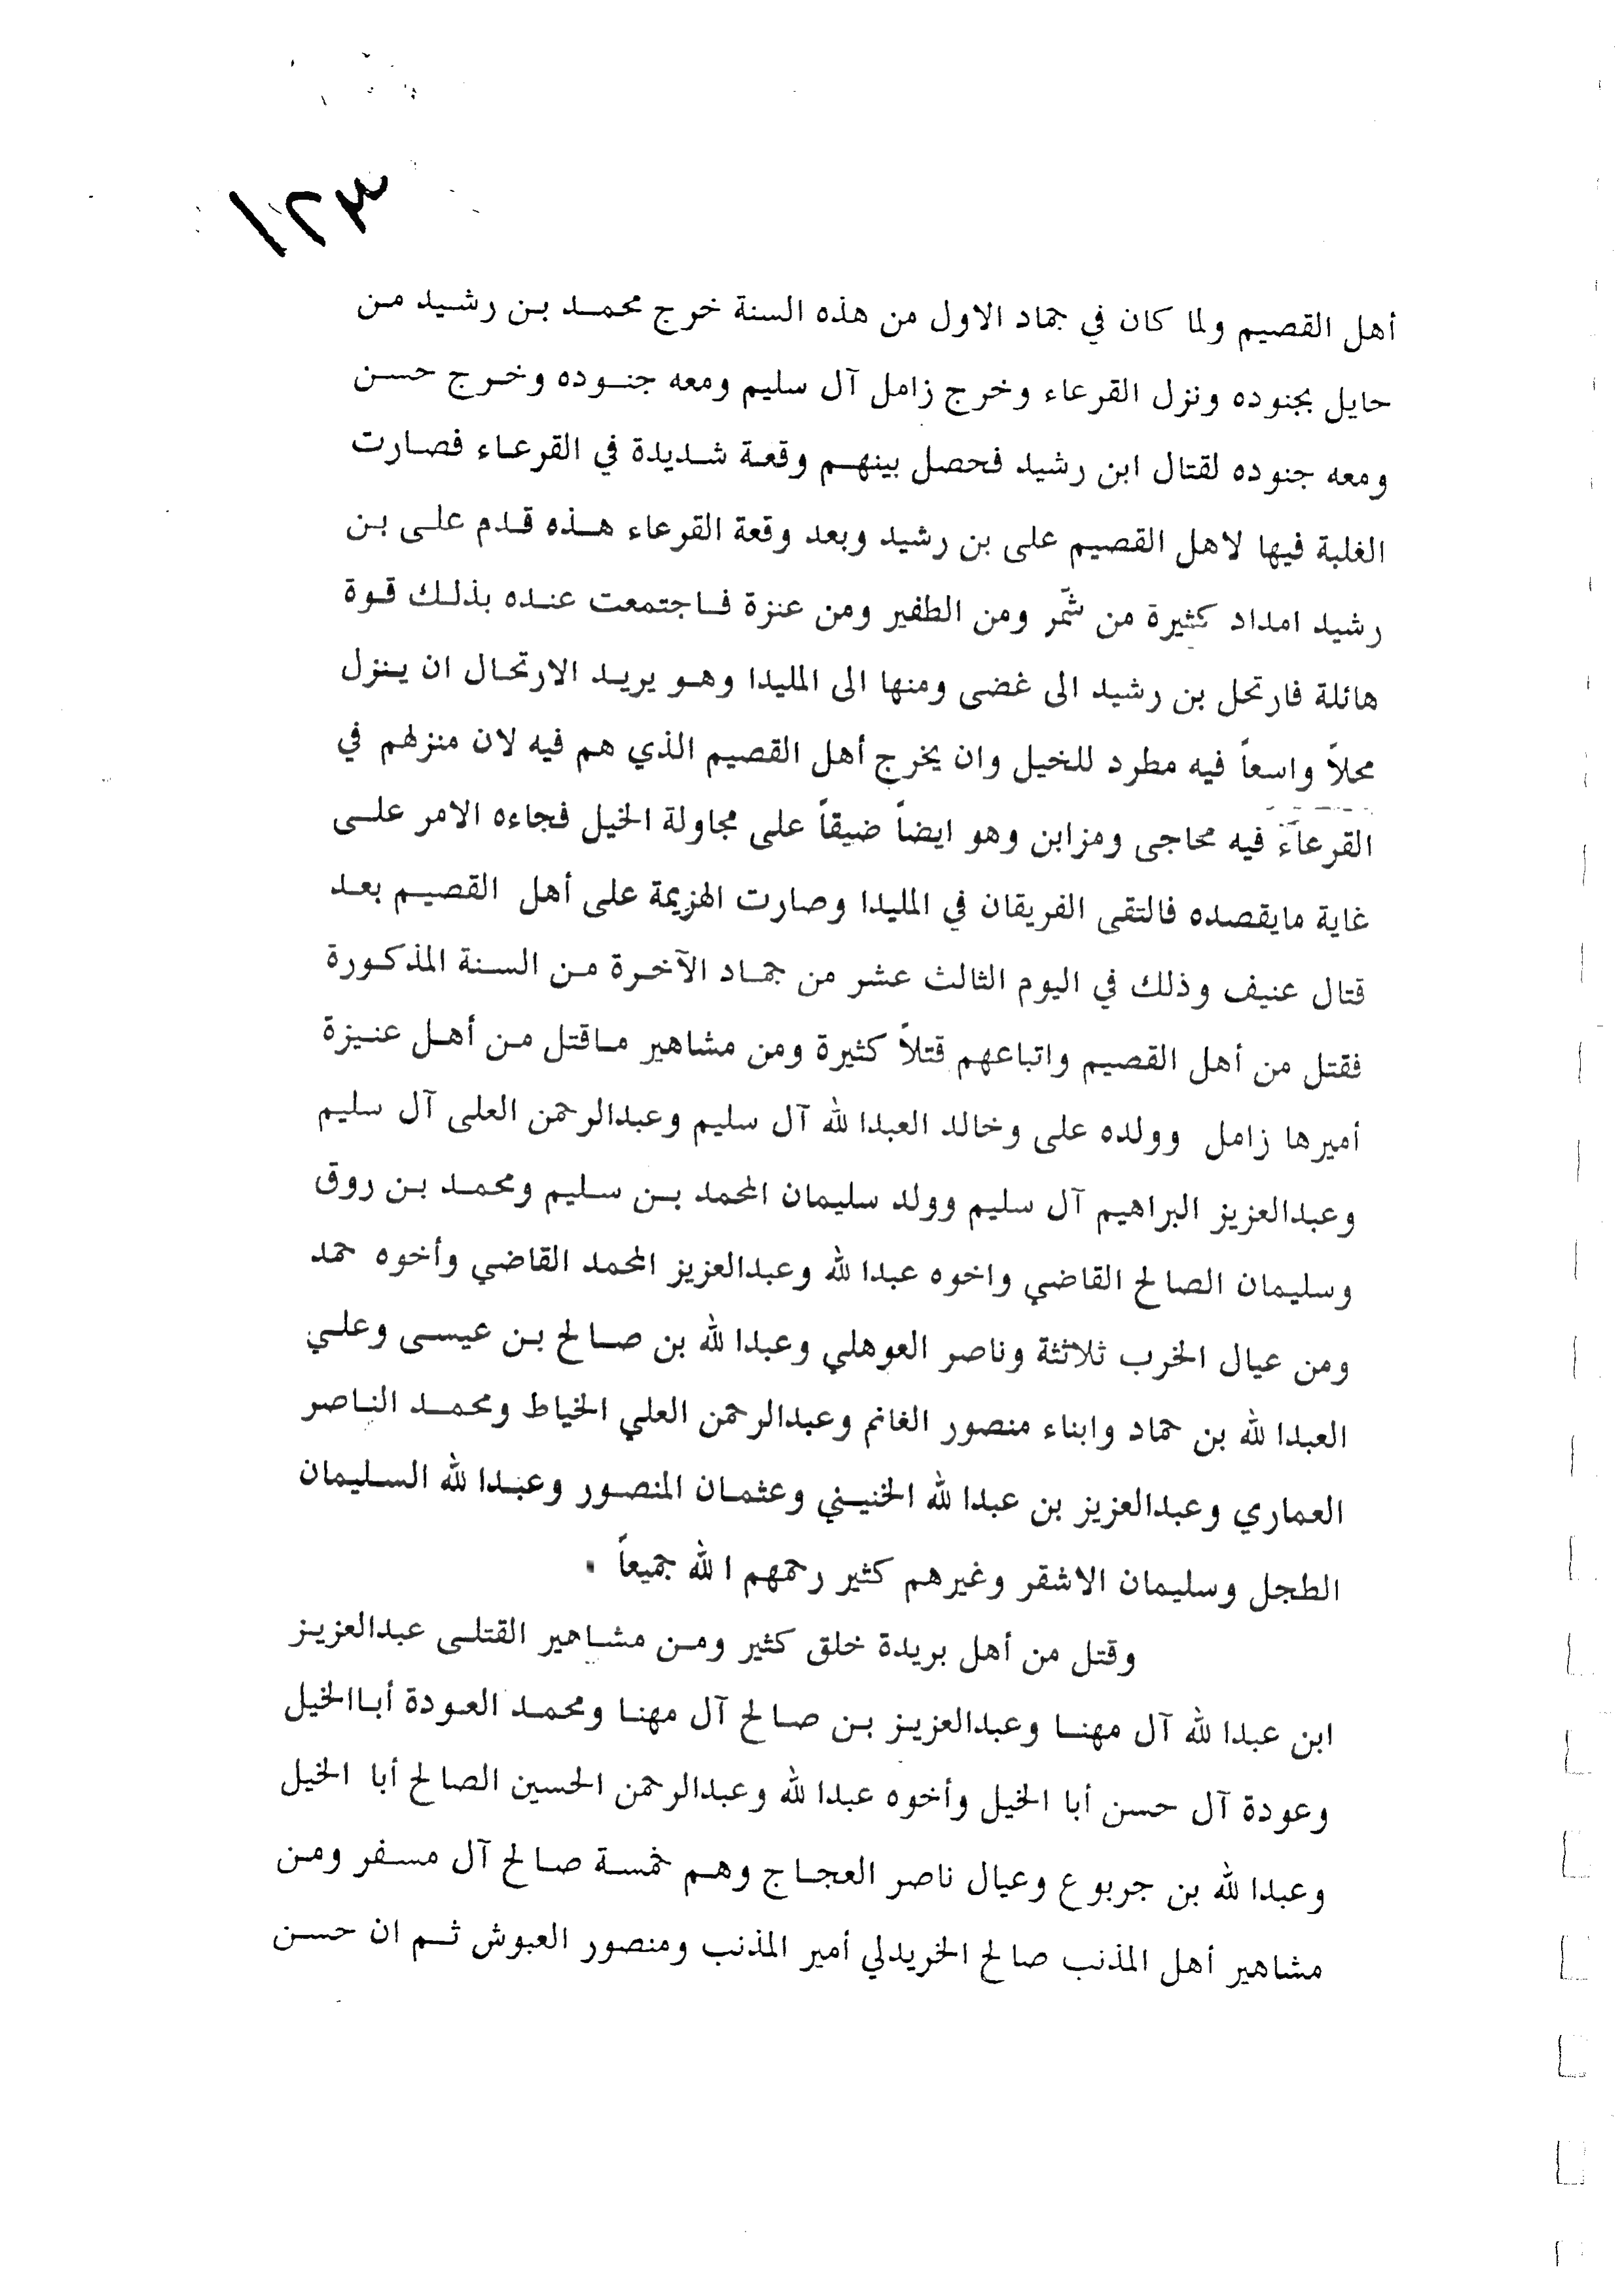 ١٢٣
أهل القصيم ولما كان في جماد الاول من هذه السنة خرج محمد بن رشيد من
حايل بجنوده ونزل القرعاء وخرج زامل آل سليم ومعه جنوده وخرج حسن
ومعه جنوده لقتال ابن رشيد فحصل بينهم وقعة شديدة في القرعاء فصارت
الغلبة فيها لاهل القصيم على بن رشيد وبعد وقعة القرعاء هذه قدم على بن
رشيد امداد كثيرة من شمّر ومن الطفير ومن عنزة فاجتمعت عنده بذلك قوة
هائلة فارتحل بن رشيد الى غضى ومنها الى المليدا وهو يريد الارتحال ان ينزل
محلاً واسعاً فيه مطرد للخيل وان يخرج أهل القصيم الذي هم فيه لان منزلهم في
القرعاء فيه محاجى ومزابن وهو ايضاً ضيقاً على مجاولة الخيل فجاءه الامر على
غاية مايقصده فالتقى الفريقان في المليدا وصارت الهزيمة على أهل القصيم بعد
قتال عنيف وذلك في اليوم الثالث عشر من جماد الآخرة من السنة المذكورة
فقتل من أهل القصيم واتباعهم قتلاً كثيرة ومن مشاهير ماقتل من أهل عنيزة
أميرها زامل وولده على وخالد العبدا لله آل سليم وعبدالرحمن العلى آل سليم
وعبدالعزيز البراهيم آل سليم وولد سليمان المحمد بن سليم ومحمد بن روق
وسليمان الصالح القاضي واخوه عبدا لله وعبدالعزيز المحمد القاضي وأخوه حمد
ومن عيال الخرب ثلاثثة وناصر العوهلي وعبدا لله بن صالح بن عيسى وعلي
العبدا لله بن حماد وابناء منصور الغانم وعبدالرحمن العلي الخياط ومحمد الناصر
العماري وعبدالعزيز بن عبدا لله الخنيني وعثمان المنصور وعبدا لله السليمان
الطجل وسليمان الاشقر وغيرهم كثير رحمهم ا لله جميعاً .
وقتل من أهل بريدة خلق كثير ومن مشاهير القتلى عبدالعزيز
ابن عبدا لله آل مهنا وعبدالعزيز بن صالح آل مهنا ومحمد العودة أباالخيل
وعودة آل حسن أبا الخيل وأخوه عبدا لله وعبدالرحمن الحسين الصالح أبا الخيل
وعبدا لله بن جربوع وعيال ناصر العجاج وهم خمسة صالح آل مسفر ومن
مشاهير أهل المذنب صالح الخريدلي أمير المذنب ومنصور العبوش ثم ان حسن